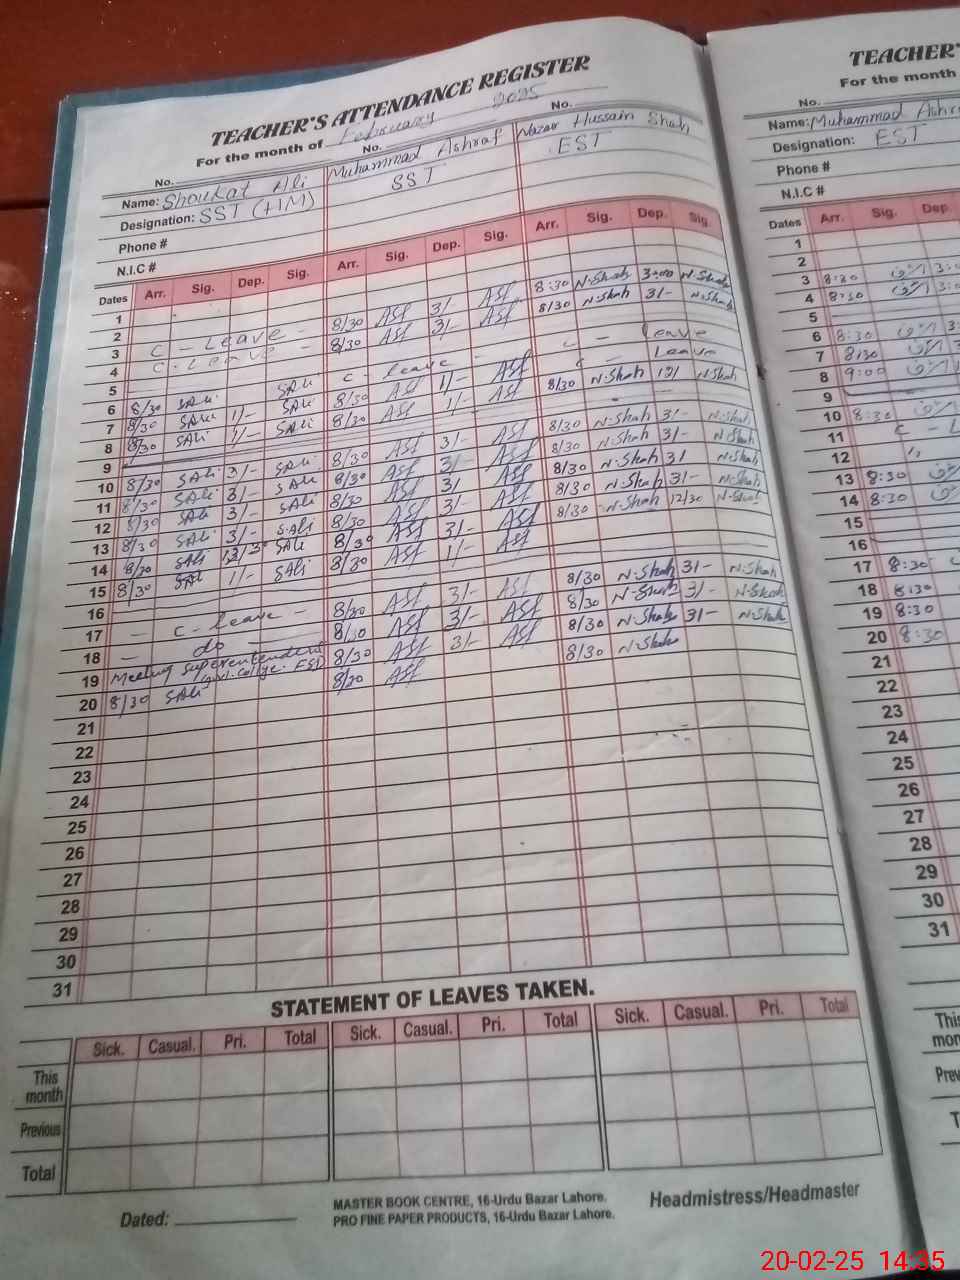 TEACHER'S ATTENDANCE REGISTER
For the month of February 2025
No. No. No.
Name: Shoukat Ali Muhammad Ashraf Nazar Hussain Shah
Designation: SST (HM) SST EST
Phone #
N.I.C #
Dates Arr. Sig. Dep. Sig. Arr. Sig. Dep. Sig. Arr. Sig. Dep. Sig.
1
2
3 C - Leave - 8/30 Asf 3/- Asf 8:30 N-Shah 3:00 N-Shah
4 C - Leave - 8/30 Asf 3/- Asf 8/30 N-Shah 3/- N-Shah
5
6 8/30 SAli SAli C - leave - C - leave
7 8/30 SAli 1/- SAli 8/30 Asf 1/- Asf C - Leave
8 8/30 SAli 1/- SAli 8/30 Asf 1/- Asf 8/30 N-Shah N-Shah
9
10 8/30 SAli 3/- SAli 8/30 Asf 3/- Asf 8/30 N-Shah 3/- N-Shah
11 8/30 SAli 3/- SAli 8/30 Asf 3/- Asf 8/30 N-Shah 3/- N-Shah
12 8/30 SAli 3/- SAli 8/30 Asf 3/ Asf 8/30 N-Shah 31 N-Shah
13 8/30 SAli 3/- SAli 8/30 Asf 3/- Asf 8/30 N-Shah 3/- N-Shah
14 8/30 SAli SAli 8/30 Asf 3/- Asf 8/30 N-Shah 12/30 N-Shah
15 8/30 SAli 1/- SAli 8/30 Asf 1/- Asf
16
17 - C - leave - 8/30 Asf 3/- Asf 8/30 N-Shah 3/- N-Shah
18 - do - 8/30 Asf 3/- Asf 8/30 N-Shah 3/- N-Shah
19 Meeting Superentendent 8/30 Asf 3/- Asf 8/30 N-Shah 3/- N-Shah
20 8/30 SAli 8/30 Asf 8/30 N-Shah
21
22
23
24
25
26
27
28
29
30
31
STATEMENT OF LEAVES TAKEN.
Sick. Casual. Pri. Total Sick. Casual. Pri. Total Sick. Casual. Pri. Total
This month
Previous
Total
Dated:
MASTER BOOK CENTRE, 16-Urdu Bazar Lahore.
PRO FINE PAPER PRODUCTS, 16-Urdu Bazar Lahore.
Headmistress/Headmaster
TEACHER'
For the month
No.
Name: Muhammad Ashra
Designation: EST
Phone #
N.I.C #
Dates Arr. Sig. Dep
1
2
3 8:30
4 8:30
5
6 8:30
7 8:30
8 9:00
9
10 8:30
11 C - L
12 "
13 8:30
14 8:30
15
16
17 8:30
18 8:30
19 8:30
20 8:30
21
22
23
24
25
26
27
28
29
30
31
This
mon
Prev
T
20-02-25 14:35